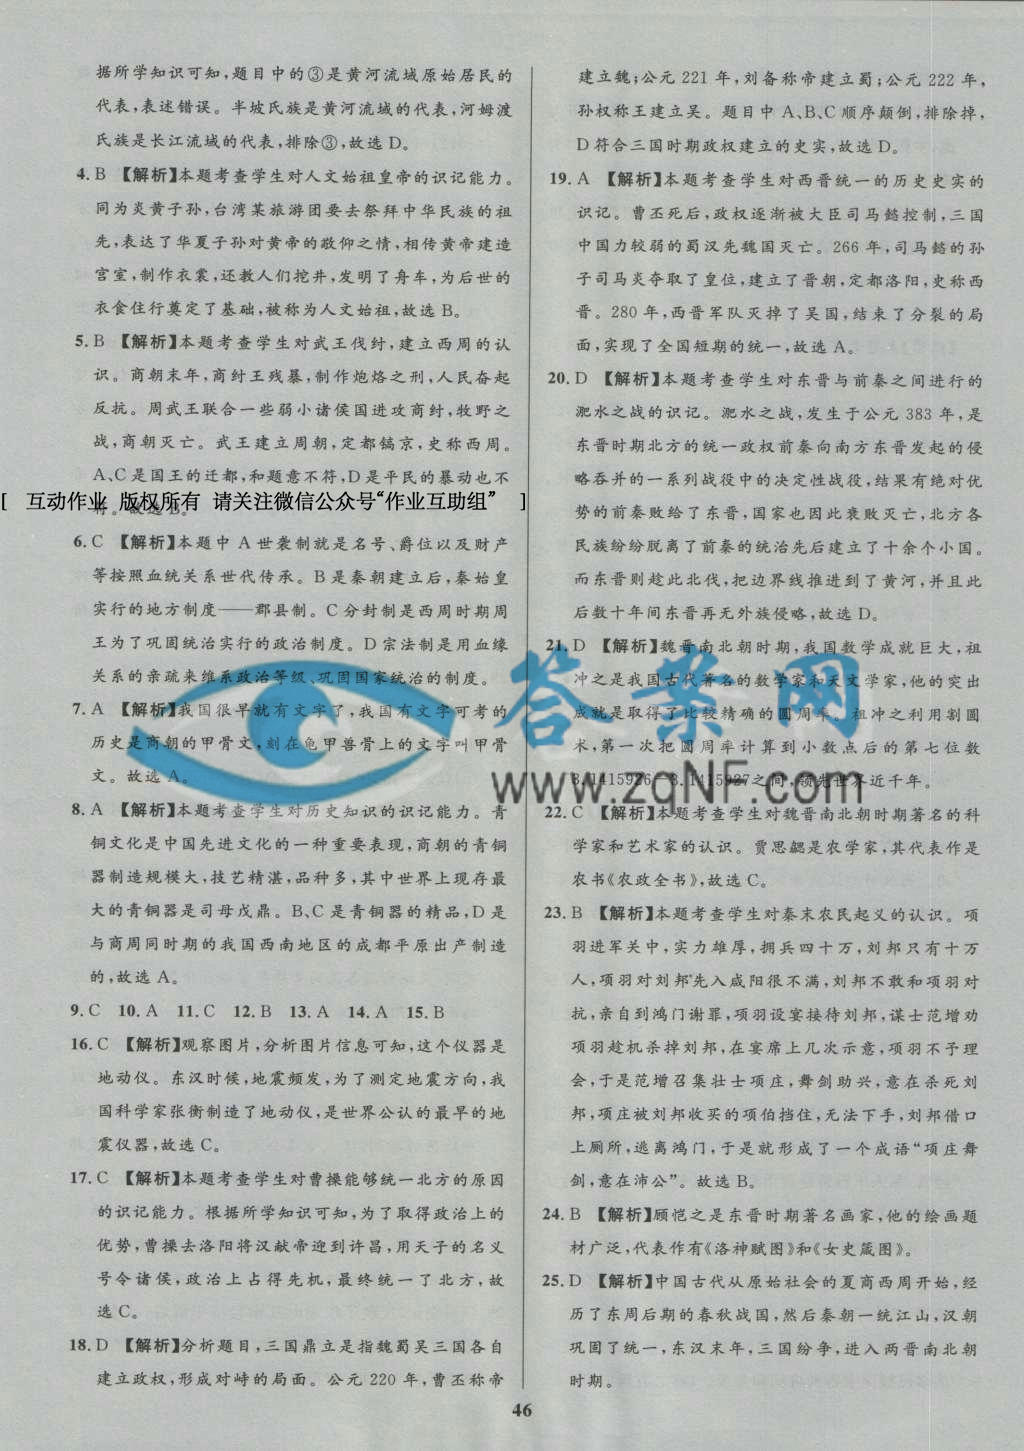 据所学知识可知,题目中的③是黄河流域原始居民的
代表,表述错误。半坡氏族是黄河流域的代表,河姆渡
氏族是长江流域的代表,排除③,故选 D。
4. B 【解析】本题考查学生对人文始祖皇帝的识记能力。
同为炎黄子孙,台湾某旅游团要去祭拜中华民族的祖
先,表达了华夏子孙对黄帝的敬仰之情,相传黄帝建造
宫室,制作衣裳,还教人们挖井,发明了舟车,为后世的
衣食住行奠定了基础,被称为人文始祖,故选 B。
5. B 【解析】本题考查学生对武王伐纣,建立西周的认
识。商朝末年,商纣王残暴,制作炮烙之刑,人民奋起
反抗。周武王联合一些弱小诸侯国进攻商纣,牧野之
战,商朝灭亡。武王建立周朝,定都镐京,史称西周。
A、C 是国王的迁都,和题意不符,D 是平民的暴动也不
符。故选 B。
[ 互动作业 版权所有 请关注微信公众号“作业互助组” ]
6. C 【解析】本题中 A 世袭制就是名号、爵位以及财产
等按照血统关系世代传承。B 是秦朝建立后,秦始皇
实行的地方制度——郡县制。C 分封制是西周时期周
王为了巩固统治实行的政治制度。D 宗法制是用血缘
关系的亲疏来维系政治等级、巩固国家统治的制度。
7. A 【解析】我国很早就有文字了,我国有文字可考的
历史是商朝的甲骨文,刻在龟甲兽骨上的文字叫甲骨
文。故选 A。
8. A 【解析】本题考查学生对历史知识的识记能力。青
铜文化是中国先进文化的一种重要表现,商朝的青铜
器制造规模大,技艺精湛,品种多,其中世界上现存最
大的青铜器是司母戊鼎。B、C 是青铜器的精品,D 是
与商周同时期的我国西南地区的成都平原出产制造
的,故选 A。
9. C 10. A 11. C 12. B 13. A 14. A 15. B
16. C 【解析】观察图片,分析图片信息可知,这个仪器是
地动仪。东汉时候,地震频发,为了测定地震方向,我
国科学家张衡制造了地动仪,是世界公认的最早的地
震仪器,故选 C。
17. C 【解析】本题考查学生对曹操能够统一北方的原因
的识记能力。根据所学知识可知,为了取得政治上的
优势,曹操去洛阳将汉献帝迎到许昌,用天子的名义
号令诸侯,政治上占得先机,最终统一了北方,故
选 C。
18. D 【解析】分析题目,三国鼎立是指魏蜀吴三国各自
建立政权,形成对峙的局面。公元 220 年,曹丕称帝
建立魏;公元 221 年,刘备称帝建立蜀;公元 222 年,
孙权称王建立吴。题目中 A、B、C 顺序颠倒,排除掉,
D 符合三国时期政权建立的史实,故选 D。
19. A 【解析】本题考查学生对西晋统一的历史史实的
识记。曹丕死后,政权逐渐被大臣司马懿控制,三国
中国力较弱的蜀汉先魏国灭亡。266 年,司马懿的孙
子司马炎夺取了皇位,建立了晋朝,定都洛阳,史称西
晋。280 年,西晋军队灭掉了吴国,结束了分裂的局
面,实现了全国短期的统一,故选 A。
20. D 【解析】本题考查学生对东晋与前秦之间进行的
淝水之战的识记。淝水之战,发生于公元 383 年,是
东晋时期北方的统一政权前秦向南方东晋发起的侵
略吞并的一系列战役中的决定性战役,结果有绝对优
势的前秦败给了东晋,国家也因此衰败灭亡,北方各
民族纷纷脱离了前秦的统治先后建立了十余个小国。
而东晋则趁此北伐,把边界线推进到了黄河,并且此
后数十年间东晋再无外族侵略,故选 D。
21. D 【解析】魏晋南北朝时期,我国数学成就巨大,祖
冲之是我国古代著名的数学家和天文学家,他的突出
成就是取得了比较精确的圆周率。祖冲之利用割圆
术,第一次把圆周率计算到小数点后的第七位数
3.1415926—3.1415927之间,领先世界近千年。
22. C 【解析】本题考查学生对魏晋南北朝时期著名的科
学家和艺术家的认识。贾思勰是农学家,其代表作是
农书《农政全书》,故选 C。
23. B 【解析】本题考查学生对秦末农民起义的认识。项
羽进军关中,实力雄厚,拥兵四十万,刘邦只有十万
人,项羽对刘邦先入咸阳很不满,刘邦不敢和项羽对
抗,亲自到鸿门谢罪,项羽设宴接待刘邦,谋士范增劝
项羽趁机杀掉刘邦,在宴席上几次示意,项羽不予理
会,于是范增召集壮士项庄,舞剑助兴,意在杀死刘
邦,项庄被刘邦收买的项伯挡住,无法下手,刘邦借口
上厕所,逃离鸿门,于是就形成了一个成语“项庄舞
剑,意在沛公”。故选 B。
24. B 【解析】顾恺之是东晋时期著名画家,他的绘画题
材广泛,代表作有《洛神赋图》和《女史箴图》。
25. D 【解析】中国古代从原始社会的夏商西周开始,经
历了东周后期的春秋战国,然后秦朝一统江山,汉朝
巩固了统一,东汉末年,三国纷争,进入两晋南北朝
时期。
答案网
www.zqNF.com
46